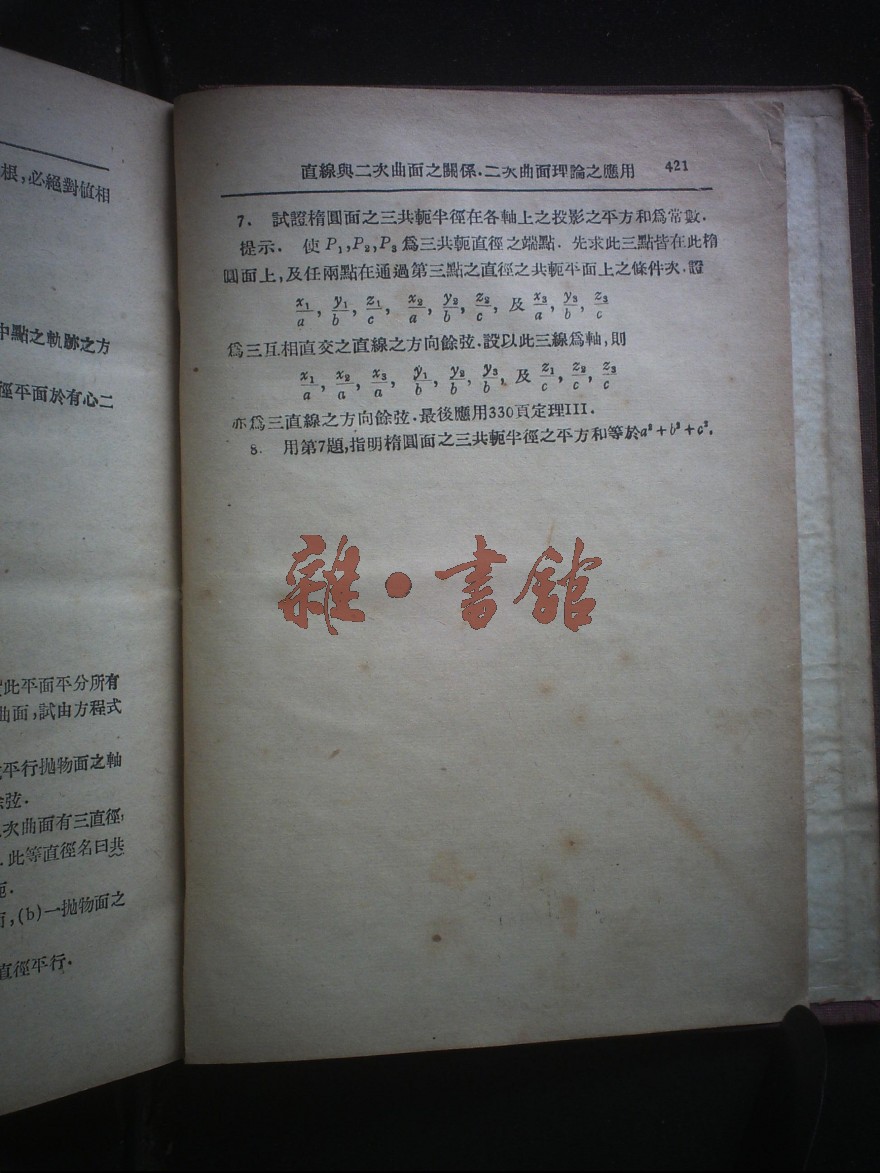 根,必絕對値相
中點之軌跡之方
徑平面於有心二
此平面平分所有
曲面,試由方程式
平行拋物面之軸
餘弦.
次曲面有三直徑,
此等直徑名曰共
軛.
,(b)一拋物面之
直徑平行.
直線與二次曲面之關係.二次曲面理論之應用 421
7. 試證橢圓面之三共軛半徑在各軸上之投影之平方和爲常數.
提示. 使 P₁,P₂,P₃ 爲三共軛直徑之端點. 先求此三點皆在此橢
圓面上,及任兩點在通過第三點之直徑之共軛平面上之條件次.證
x₁/a, y₁/b, z₁/c, x₂/a, y₂/b, z₂/c, 及 x₃/a, y₃/b, z₃/c
爲三互相直交之直線之方向餘弦.設以此三線爲軸,則
x₁/a, x₂/a, x₃/a, y₁/b, y₂/b, y₃/b, 及 z₁/c, z₂/c, z₃/c
亦爲三直線之方向餘弦.最後應用330頁定理III.
8. 用第7題,指明橢圓面之三共軛半徑之平方和等於a²+b²+c².
雜·書館